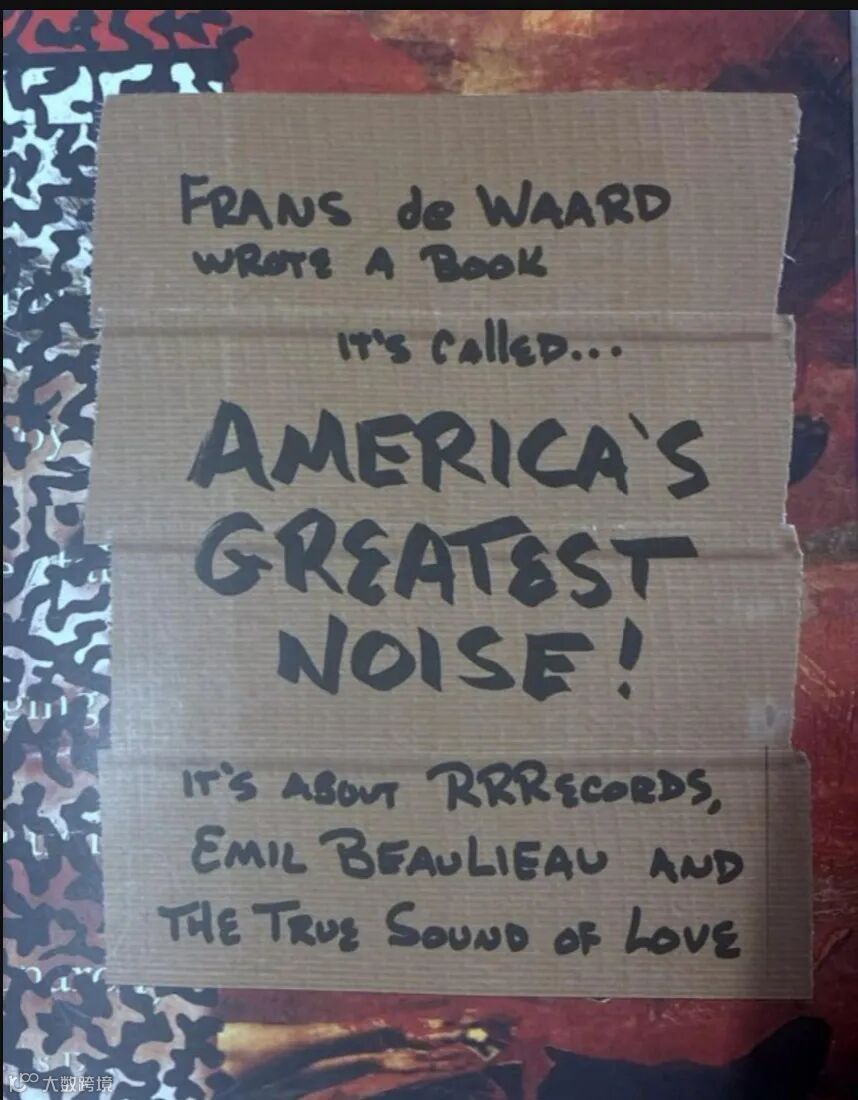 FRANS de WAARD
WROTE A BOOK
IT'S CALLED...
AMERICA'S
GREATEST
NOISE!
IT'S ABOUT RRRECORDS,
EMIL BEAULIEAU AND
THE TRUE SOUND OF LOVE
大数跨境